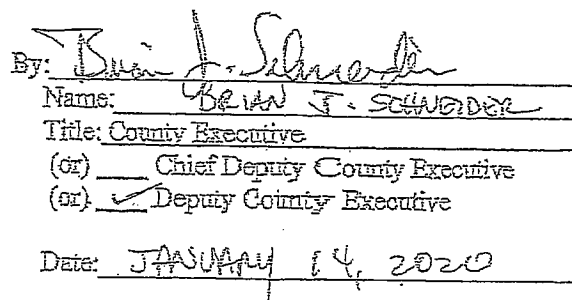 By: Brian J. Schneider
Name: BRIAN J. SCHNEIDER
Title: County Executive
(or) ____ Chief Deputy County Executive
(or) ✓ Deputy County Executive
Date: JANUARY 14, 2020